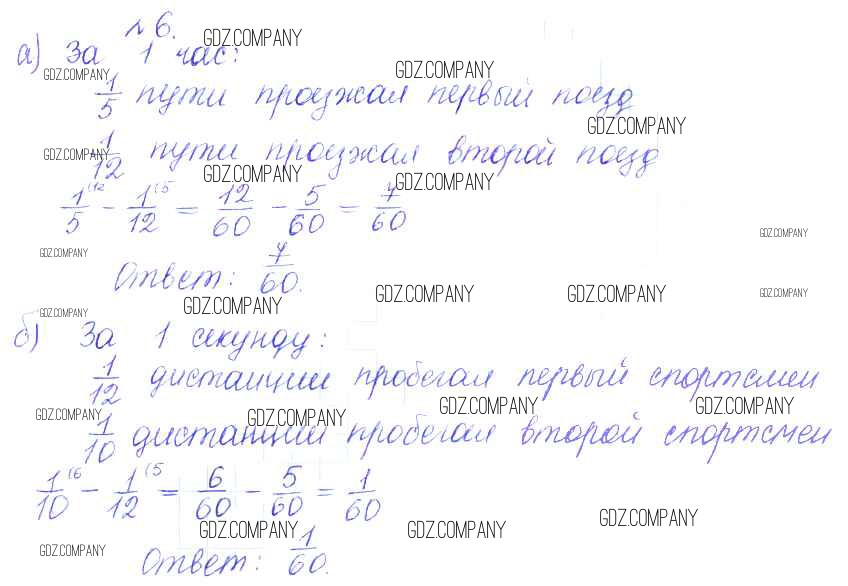 № 6.
GDZ.COMPANY
а) За 1 час:
GDZ.COMPANY GDZ.COMPANY
1/5 пути проезжал первый поезд
GDZ.COMPANY
1/12 пути проезжал второй поезд
GDZ.COMPANY GDZ.COMPANY GDZ.COMPANY
1/5 (12 - 1/12 (5 = 12/60 - 5/60 = 7/60
GDZ.COMPANY
GDZ.COMPANY
Ответ: 7/60.
GDZ.COMPANY GDZ.COMPANY GDZ.COMPANY GDZ.COMPANY
GDZ.COMPANY
б) За 1 секунду:
1/12 дистанции пробегал первый спортсмен
GDZ.COMPANY GDZ.COMPANY GDZ.COMPANY GDZ.COMPANY
1/10 дистанции пробегал второй спортсмен
1/10 (6 - 1/12 (5 = 6/60 - 5/60 = 1/60
GDZ.COMPANY GDZ.COMPANY GDZ.COMPANY
GDZ.COMPANY
Ответ: 1/60.